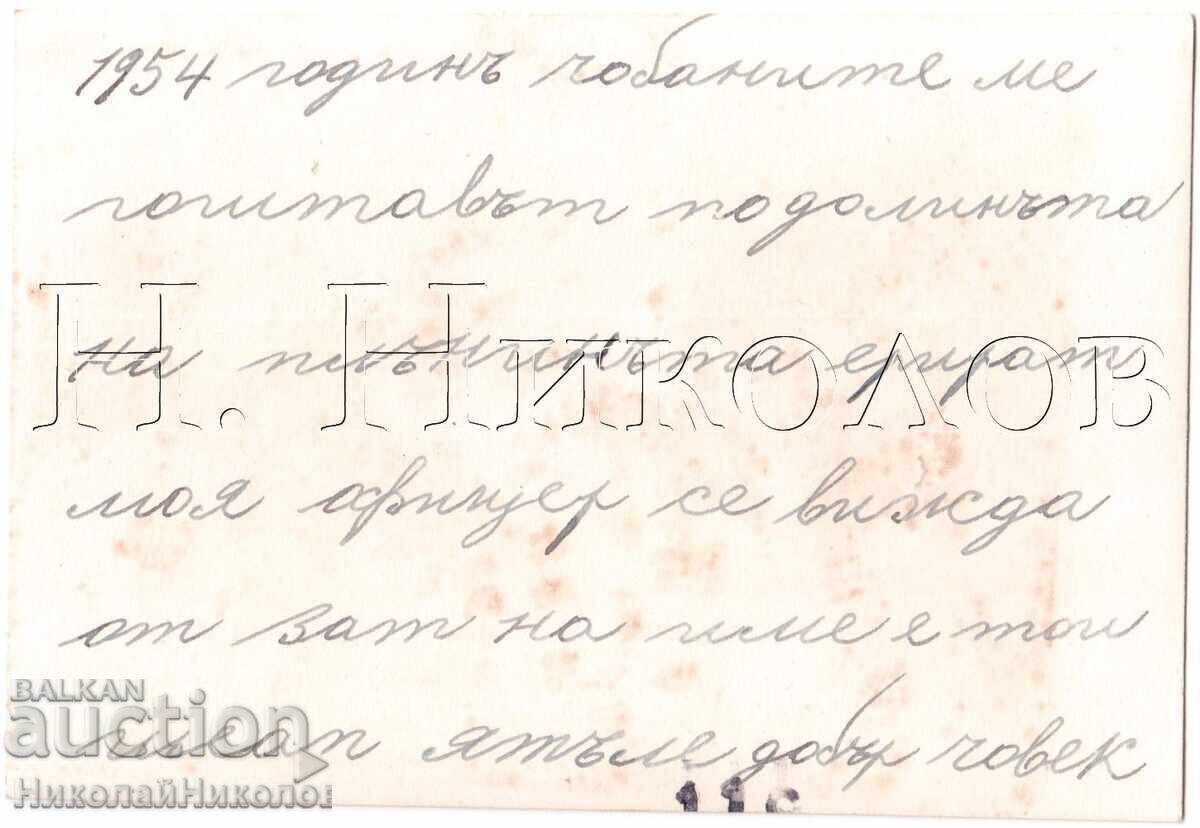 1954 годинъ чобаните ме
гоштавът подолинъта
на плънинъта
моя офицер се вижда
от зат на име е тои
ятъле добър човек
Н. Николов
BALKAN
auction
НиколайНиколов
118